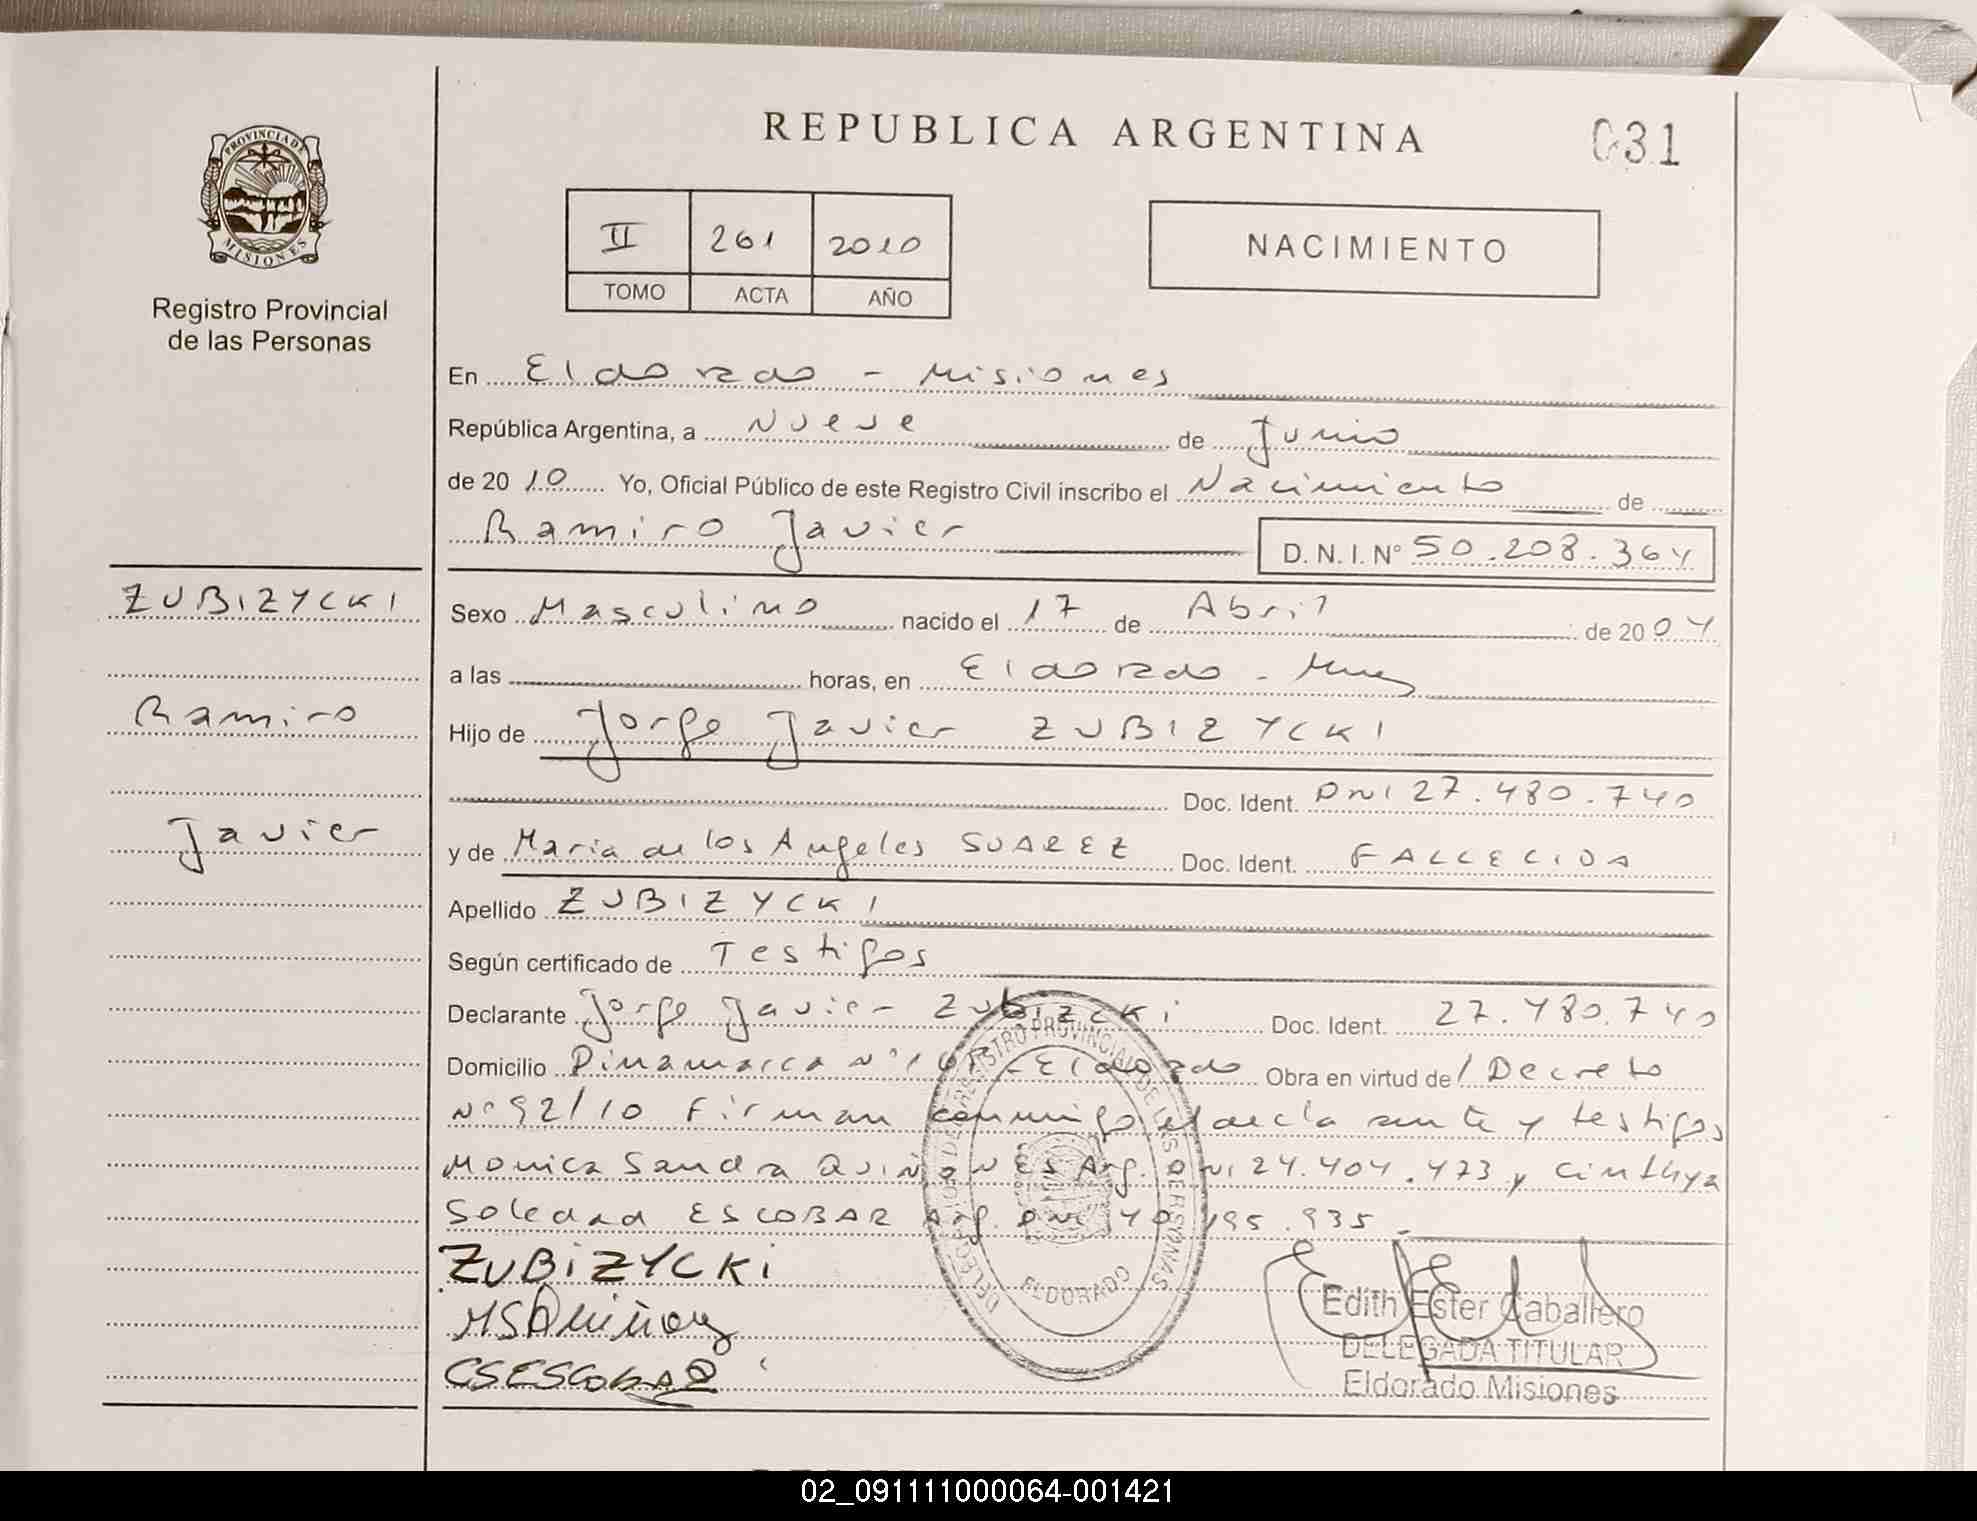 REPUBLICA ARGENTINA
031
PROVINCIA DE
MISIONES
Registro Provincial
de las Personas
II 261 2010
TOMO ACTA AÑO
NACIMIENTO
En Eldorado - Misiones
República Argentina, a Nueve de Junio
de 2010 Yo, Oficial Público de este Registro Civil inscribo el Nacimiento de
Ramiro Javier D.N.I. Nº 50.208.364
ZUBIZYCKI
Ramiro
Javier
Sexo Masculino nacido el 17 de Abril de 2004
a las horas, en Eldorado - Mnes
Hijo de Jorge Javier ZUBIZYCKI
Doc. Ident. DNI 27.480.740
y de Maria de los Angeles SUAREZ Doc. Ident. FALLECIDA
Apellido ZUBIZYCKI
Según certificado de Testigos
Declarante Jorge Javier Zubizcki Doc. Ident. 27.480.740
Domicilio Dinamarca Nº - Eldorado Obra en virtud de Decreto
Nº 92/10 Firman conmigo el declarante y testigos
Monica Sandra QUIÑONES Arg. DNI 24.404.473 y Cinthya
Soledad ESCOBAR Arg. DNI 40.195.935.-
ZUBiZYCKi
MSQuiñones
CSESCOBAR
DELEGACION DEL REGISTRO PROVINCIAL DE LAS PERSONAS
ELDORADO
Edith Ester Caballero
DELEGADA TITULAR
Eldorado Misiones
02_091111000064-001421